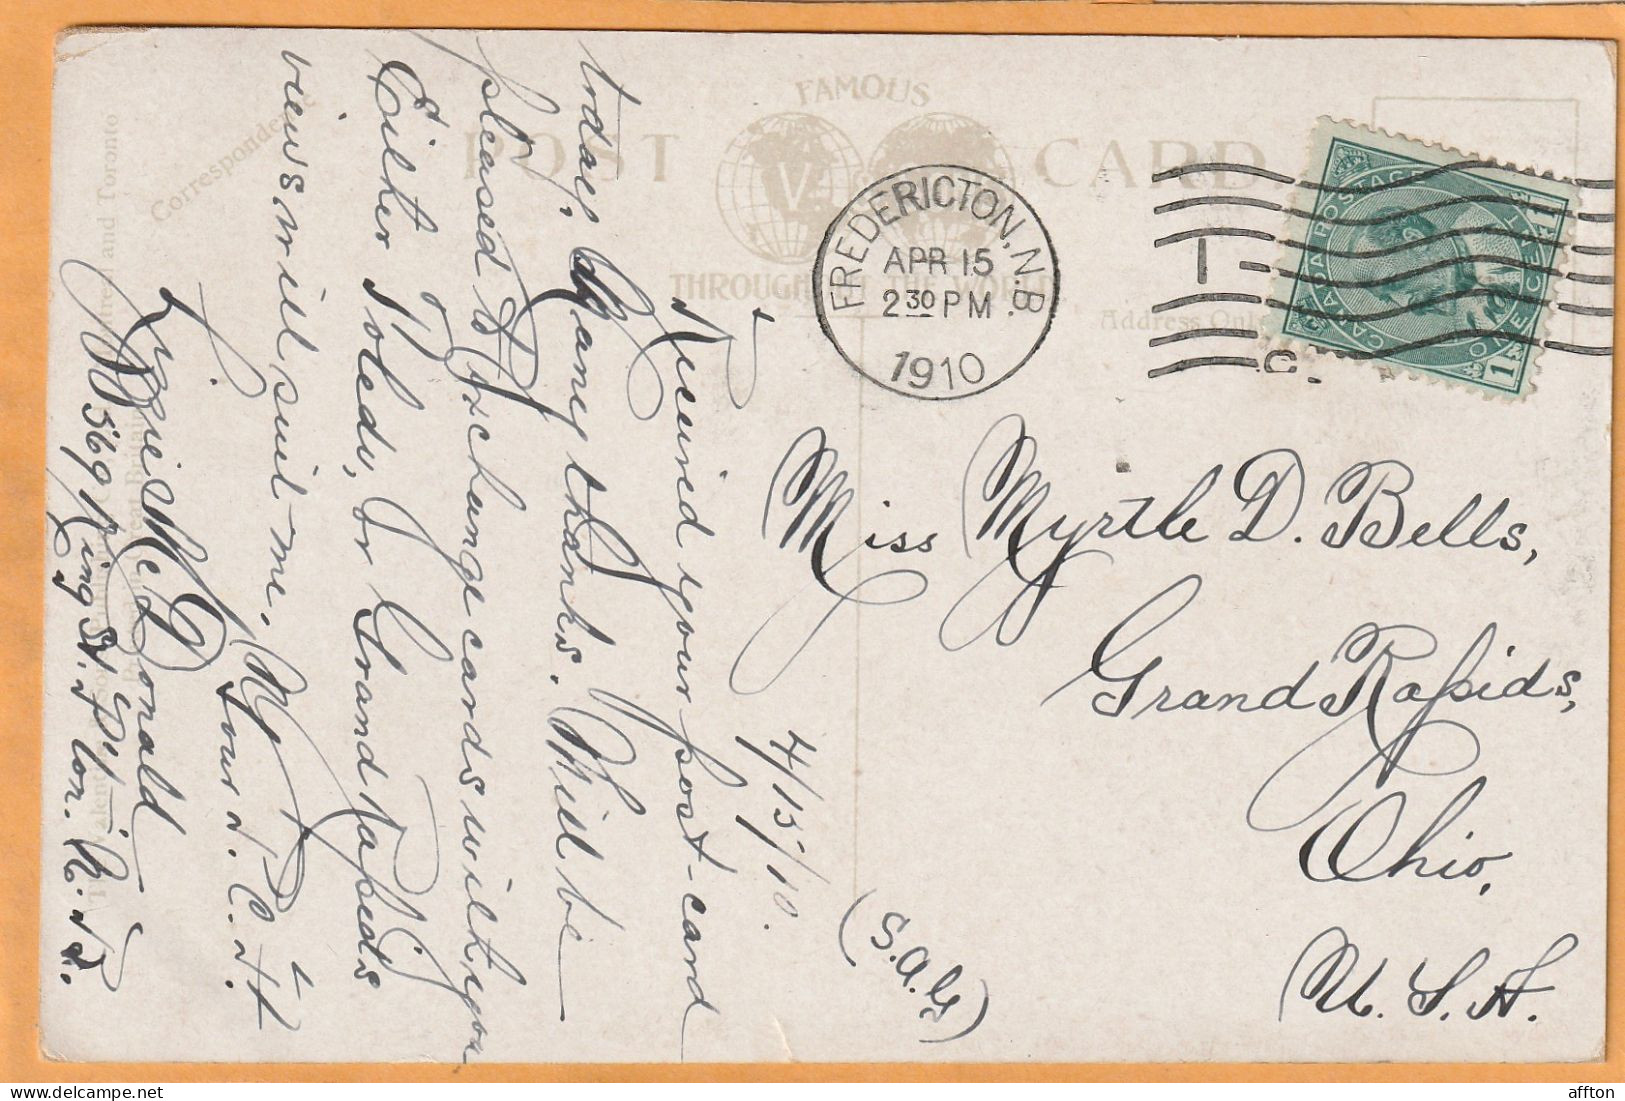 FAMOUS
POST CARD
THROUGHOUT THE WORLD
Correspondence
Address Only
FREDERICTON, N.B.
APR 15
2 30 PM
1910
CANADA POSTAGE
ONE CENT
1 1
C.
Miss Myrtle D. Bells,
Grand Rapids,
Ohio,
U. S. A.
(S.A.G)
4/15/10.
Received your post-card
today, Many thanks. Will be
pleased to exchange cards with you
Either Toledo, or Grand Rapids
views will suit me.
Your
Lizzie McDonald
569 King St. F'ton. N.B.
affton